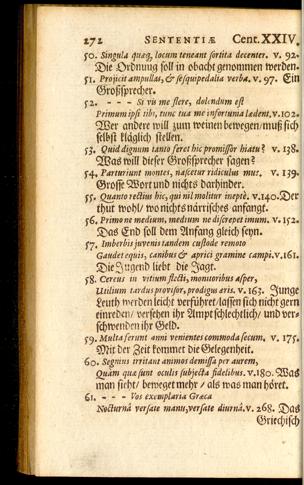 272 SENTENTIÆ Cent. XXIV.
50. Singula quæq, locum teneant sortita decenter. v. 92.
Die Ordnung soll in obacht genommen werden.
51. Projicit ampullas, & sesquipedalia verba. v. 97. Ein
Großsprecher.
52. - - - Si vis me flere, dolendum est
Primum ipsi tibi, tunc tua me infortunia lædent. v. 102.
Wer andere will zum weinen bewegen/ muß sich
selbst kläglich stellen.
53. Quid dignum tanto feret hic promissor hiatu? v. 138.
Was will dieser Großsprecher sagen?
54. Parturiunt montes, nascetur ridiculus mus. v. 139.
Grosse Wort und nichts darhinder.
55. Quanto rectius hic, qui nil molitur ineptè. v. 140. Der
thut wohl/ wo nichts närrisches anfangt.
56. Primo ne medium, medio ne discrepet imum. v. 152.
Das End soll dem Anfang gleich seyn.
57. Imberbis juvenis tandem custode remoto
Gaudet equis, canibus & aprici gramine campi. v. 161.
Die Jugend liebt die Jagt.
58. Cereus in vitium flecti, monitoribus asper,
Utilium tardus provisor, prodigus æris. v. 163. Junge
Leuth werden leicht verführet/ lassen sich nicht gern
einreden/ versehen ihr Ampt schlechtlich/ und ver-
schwenden ihr Geld.
59. Multa ferunt anni venientes commoda secum. v. 175.
Mit der Zeit kommet die Gelegenheit.
60. Segnius irritant animos demissa per aurem,
Quàm quæ sunt oculis subjecta fidelibus. v. 180. Was
man sieht/ beweget mehr/ als was man höret.
61. - - - Vos exemplaria Græca
Nocturnâ versate manu, versate diurnâ. v. 268. Das
Griechisch